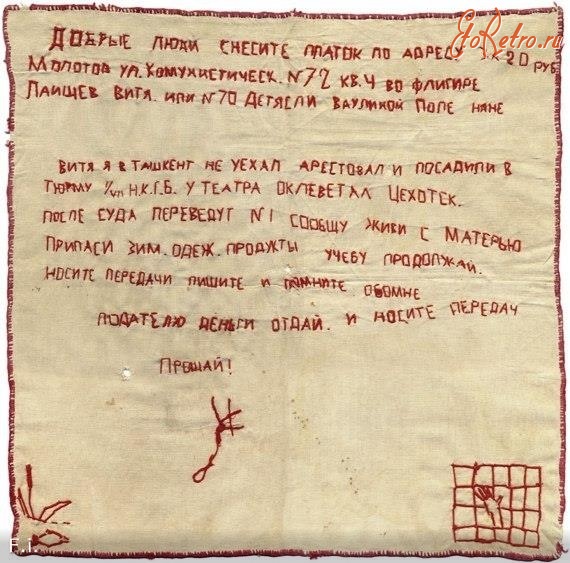 GoRetro.ru
ДОБРЫЕ ЛЮДИ СНЕСИТЕ ПЛАТОК ПО АДРЕСУ 20 РУБ
МОЛОТОВ УЛ. КОМУНИСТИЧЕСК. N 72 КВ. 4 ВО ФЛИГИРЕ
ЛАИЩЕВ ВИТЯ. ИЛИ N 70 ДЕТЯСЛИ ПОЛЕ НЯНЕ
ВИТЯ Я В ТАШКЕНТ НЕ УЕХАЛ АРЕСТОВАЛ И ПОСАДИЛИ В
ТЮРМУ Н.К.Г.Б. У ТЕАТРА ОКЛЕВЕТАЛ ЦЕХОТЕК.
ПОСЛЕ СУДА ПЕРЕВЕДУТ N 1 СООБЩУ ЖИВИ С МАТЕРЬЮ
ПРИПАСИ ЗИМ. ОДЕЖ. ПРОДУКТЫ УЧЕБУ ПРОДОЛЖАЙ.
НОСИТЕ ПЕРЕДАЧИ ПИШИТЕ И ПОМНИТЕ ОБОМНЕ
ПОДАТЕЛЮ ДЕНЬГИ ОТДАЙ. И НОСИТЕ ПЕРЕДАЧ
ПРОЩАЙ!